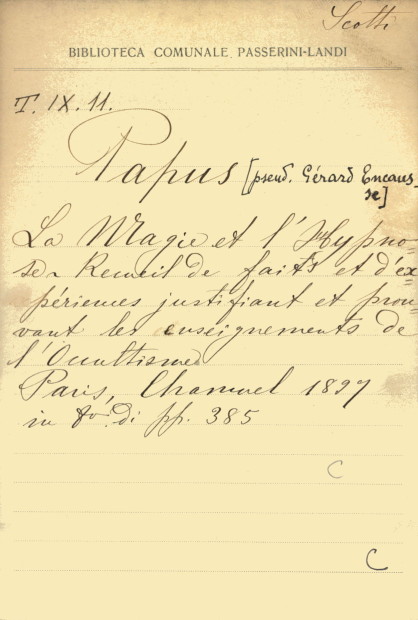 Scotti
BIBLIOTECA COMUNALE PASSERINI-LANDI
T. IX. 11.
Papus [pseud. Gérard Encaus-
se]
La Magie et l'Hypno-
se - Recueil de faits et d'ex-
périences justifiant et prou-
vant les enseignements de
l'Occultisme
Paris, Chamuel 1897
in 8° di pp. 385
C
C